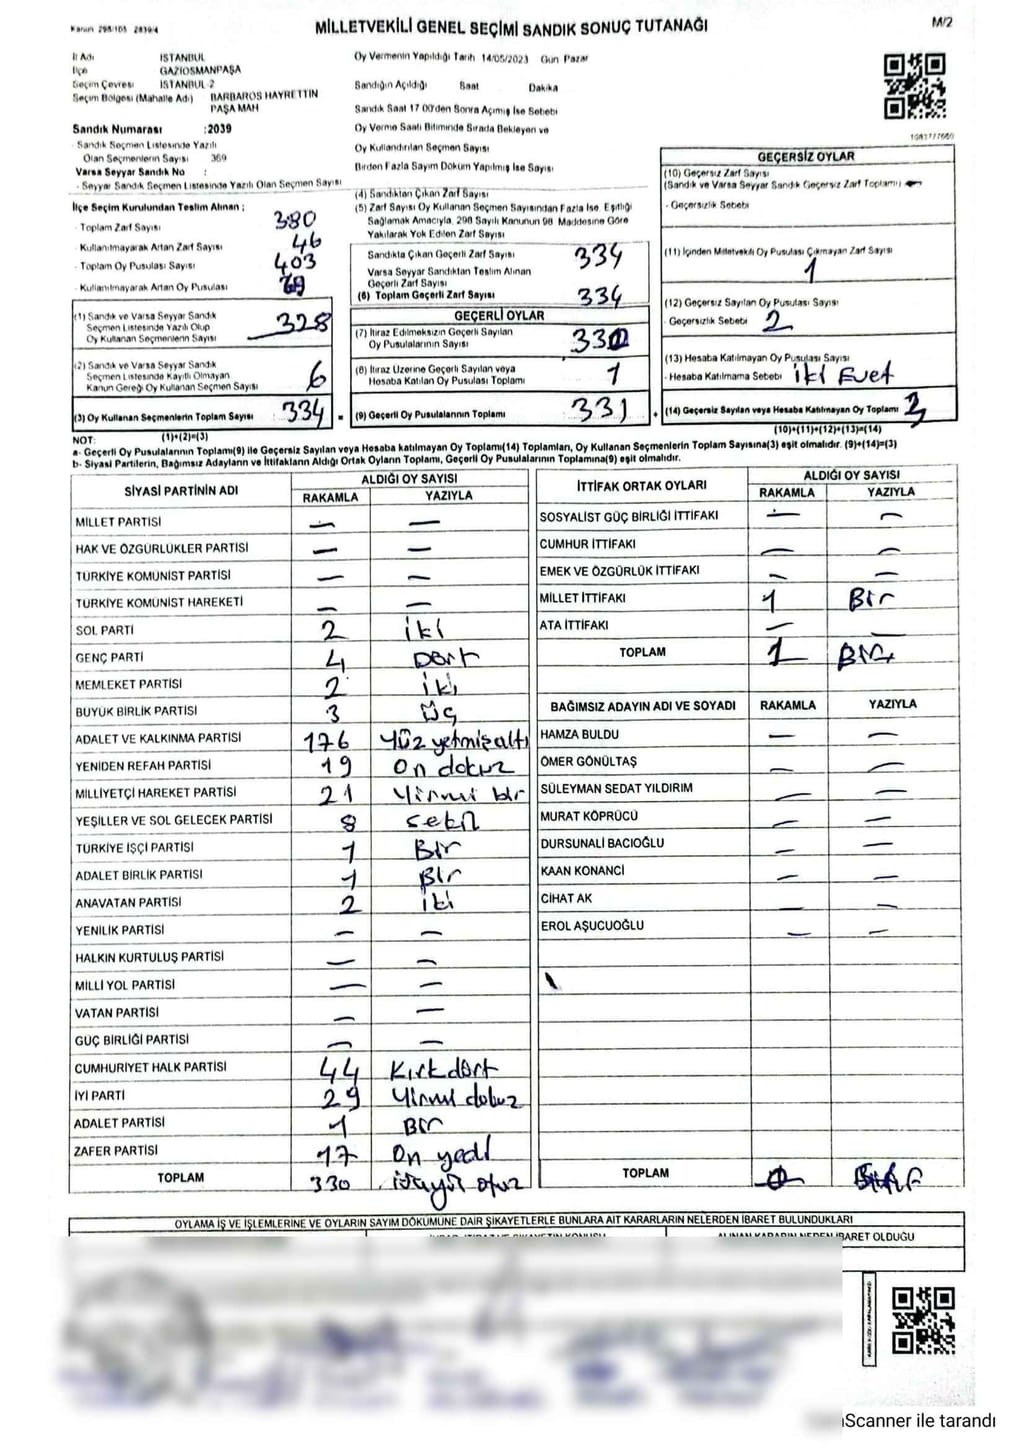 Kanun 298/105 2839/4
MİLLETVEKİLİ GENEL SEÇİMİ SANDIK SONUÇ TUTANAĞI
M/2
İl Adı İSTANBUL
İlçe GAZİOSMANPAŞA
Seçim Çevresi İSTANBUL 2
Seçim Bölgesi (Mahalle Adı) BARBAROS HAYRETTİN PAŞA MAH
Sandık Numarası :2039
- Sandık Seçmen Listesinde Yazılı
Olan Seçmenlerin Sayısı 369
Varsa Seyyar Sandık No :
- Seyyar Sandık Seçmen Listesinde Yazılı Olan Seçmen Sayısı
Oy Vermenin Yapıldığı Tarih 14/05/2023 Gün Pazar
Sandığın Açıldığı Saat Dakika
Sandık Saat 17 00'den Sonra Açımış İse Sebebi
Oy Verme Saati Bitiminde Sırada Bekleyen ve
Oy Kullandırılan Seçmen Sayısı
Birden Fazla Sayım Döküm Yapılmış İse Sayısı
İlçe Seçim Kurulundan Teslim Alınan :
- Toplam Zarf Sayısı 380
- Kullanılmayarak Artan Zarf Sayısı 46
- Toplam Oy Pusulası Sayısı 403
- Kullanılmayarak Artan Oy Pusulası
(1) Sandık ve Varsa Seyyar Sandık
Seçmen Listesinde Yazılı Olup
Oy Kullanan Seçmenlerin Sayısı 328
(2) Sandık ve Varsa Seyyar Sandık
Seçmen Listesinde Kayıtlı Olmayan
Kanun Gereği Oy Kullanan Seçmen Sayısı 6
(3) Oy Kullanan Seçmenlerin Toplam Sayısı 334 =
(1)+(2)=(3)
(4) Sandıktan Çıkan Zarf Sayısı
(5) Zarf Sayısı Oy Kullanan Seçmen Sayısından Fazla İse, Eşitliği
Sağlamak Amacıyla, 298 Sayılı Kanunun 98. Maddesine Göre
Yakılarak Yok Edilen Zarf Sayısı
Sandıkta Çıkan Geçerli Zarf Sayısı 334
Varsa Seyyar Sandıktan Teslim Alınan
Geçerli Zarf Sayısı
(6) Toplam Geçerli Zarf Sayısı 334
GEÇERLİ OYLAR
(7) İtiraz Edilmeksizin Geçerli Sayılan
Oy Pusulalarının Sayısı 330
(8) İtiraz Üzerine Geçerli Sayılan veya
Hesaba Katılan Oy Pusulası Toplamı 1
(9) Geçerli Oy Pusulalarının Toplamı 331 +
1083777660
GEÇERSİZ OYLAR
(10) Geçersiz Zarf Sayısı
(Sandık ve Varsa Seyyar Sandık Geçersiz Zarf Toplamı) -
- Geçersizlik Sebebi
(11) İçinden Milletvekili Oy Pusulası Çıkmayan Zarf Sayısı
1
(12) Geçersiz Sayılan Oy Pusulası Sayısı
- Geçersizlik Sebebi 2
(13) Hesaba Katılmayan Oy Pusulası Sayısı
- Hesaba Katılmama Sebebi iki Evet
(14) Geçersiz Sayılan veya Hesaba Katılmayan Oy Toplamı 3
(10)+(11)+(12)+(13)=(14)
NOT:
a- Geçerli Oy Pusulalarının Toplamı(9) ile Geçersiz Sayılan veya Hesaba katılmayan Oy Toplamı(14) Toplamları, Oy Kullanan Seçmenlerin Toplam Sayısına(3) eşit olmalıdır. (9)+(14)=(3)
b- Siyasi Partilerin, Bağımsız Adayların ve İttifakların Aldığı Ortak Oyların Toplamı, Geçerli Oy Pusulalarının Toplamına(9) eşit olmalıdır.
SİYASİ PARTİNİN ADI ALDIĞI OY SAYISI
RAKAMLA YAZIYLA
MİLLET PARTİSİ - -
HAK VE ÖZGÜRLÜKLER PARTİSİ - -
TÜRKİYE KOMÜNİST PARTİSİ - -
TÜRKİYE KOMÜNİST HAREKETİ - -
SOL PARTİ 2 iki
GENÇ PARTİ 4 Dört
MEMLEKET PARTİSİ 2 iki
BÜYÜK BİRLİK PARTİSİ 3 üç
ADALET VE KALKINMA PARTİSİ 176 Yüz yetmişaltı
YENİDEN REFAH PARTİSİ 19 On dokuz
MİLLİYETÇİ HAREKET PARTİSİ 21 Yirmi bir
YEŞİLLER VE SOL GELECEK PARTİSİ 8 sekiz
TÜRKİYE İŞÇİ PARTİSİ 1 Bir
ADALET BİRLİK PARTİSİ 1 Bir
ANAVATAN PARTİSİ 2 iki
YENİLİK PARTİSİ - -
HALKIN KURTULUŞ PARTİSİ - -
MİLLİ YOL PARTİSİ - -
VATAN PARTİSİ - -
GÜÇ BİRLİĞİ PARTİSİ - -
CUMHURİYET HALK PARTİSİ 44 Kırkdört
İYİ PARTİ 29 Yirmi dokuz
ADALET PARTİSİ 1 Bir
ZAFER PARTİSİ 17 On yedi
TOPLAM 330 üçyüz otuz
İTTİFAK ORTAK OYLARI ALDIĞI OY SAYISI
RAKAMLA YAZIYLA
SOSYALİST GÜÇ BİRLİĞİ İTTİFAKI - -
CUMHUR İTTİFAKI - -
EMEK VE ÖZGÜRLÜK İTTİFAKI - -
MİLLET İTTİFAKI 1 Bir
ATA İTTİFAKI - -
TOPLAM 1 Bir
BAĞIMSIZ ADAYIN ADI VE SOYADI RAKAMLA YAZIYLA
HAMZA BULDU - -
ÖMER GÖNÜLTAŞ - -
SÜLEYMAN SEDAT YILDIRIM - -
MURAT KÖPRÜCÜ - -
DURSUNALİ BACIOĞLU - -
KAAN KONANCİ - -
CİHAT AK - -
EROL AŞUCUOĞLU - -
TOPLAM
OYLAMA İŞ VE İŞLEMLERİNE VE OYLARIN SAYIM DÖKÜMÜNE DAİR ŞİKAYETLERLE BUNLARA AİT KARARLARIN NELERDEN İBARET BULUNDUKLARI
ALINAN KARARIN NEDEN İBARET OLDUĞU
Scanner ile tarandı